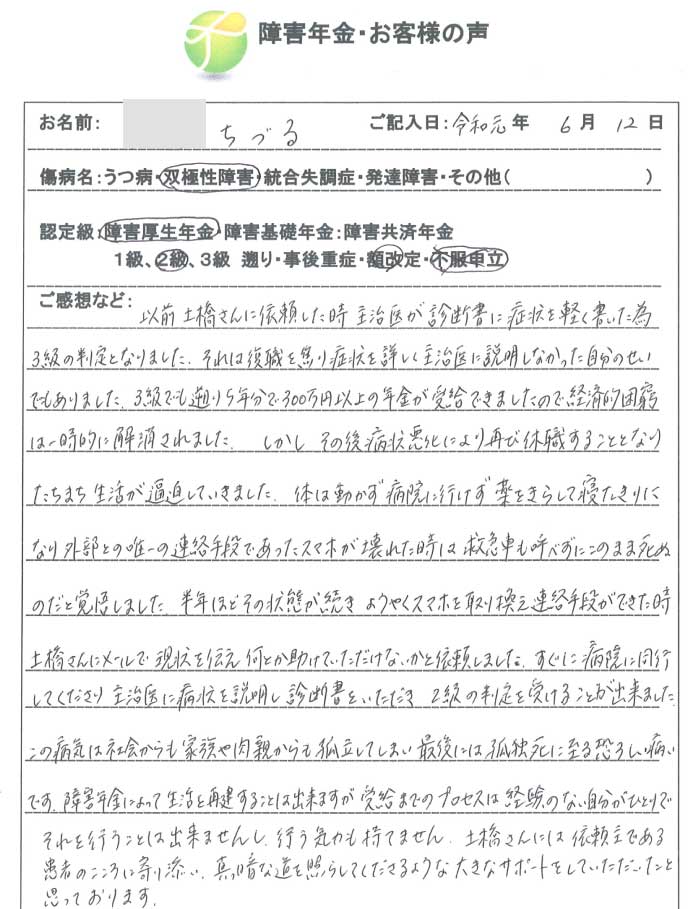 障害年金・お客様の声
お名前: ちづる ご記入日: 令和元年 6月 12日
傷病名:うつ病・双極性障害・統合失調症・発達障害・その他( )
認定級:障害厚生年金・障害基礎年金:障害共済年金
1級、2級、3級 遡り・事後重症・額改定・不服申立
ご感想など: 以前土橋さんに依頼した時主治医が診断書に症状を軽く書いた為
3級の判定となりました。それは復職を焦り症状を詳しく主治医に説明しなかった自分のせい
でもありました。3級でも遡り5年分で300万円以上の年金が受給できましたので経済的困窮
は一時的に解消されました。しかしその後病状悪化により再び休職することとなり
たちまち生活が逼迫していきました。体は動かず病院に行けず薬をきらして寝たきりに
なり外部との唯一の連絡手段であったスマホが壊れた時は救急車も呼べずにこのまま死ぬ
のだと覚悟しました。半年ほどその状態が続きようやくスマホを取り換え連絡手段ができた時
土橋さんにメールで現状を伝え何とか助けていただけないかと依頼しました。すぐに病院に同行
してくださり主治医に病状を説明し診断書をいただき2級の判定を受けることが出来ました。
この病気は社会からも家族や肉親からも孤立してしまい最後には孤独死に至る恐ろしい病い
です。障害年金によって生活を再建することは出来ますが受給までのプロセスは経験のない自分がひとりで
それを行うことは出来ませんし、行う気力も持てません。土橋さんには依頼主である
患者のこころに寄り添い、真っ暗な道を照らしてくださるような大きなサポートをしていただいたと
思っております。